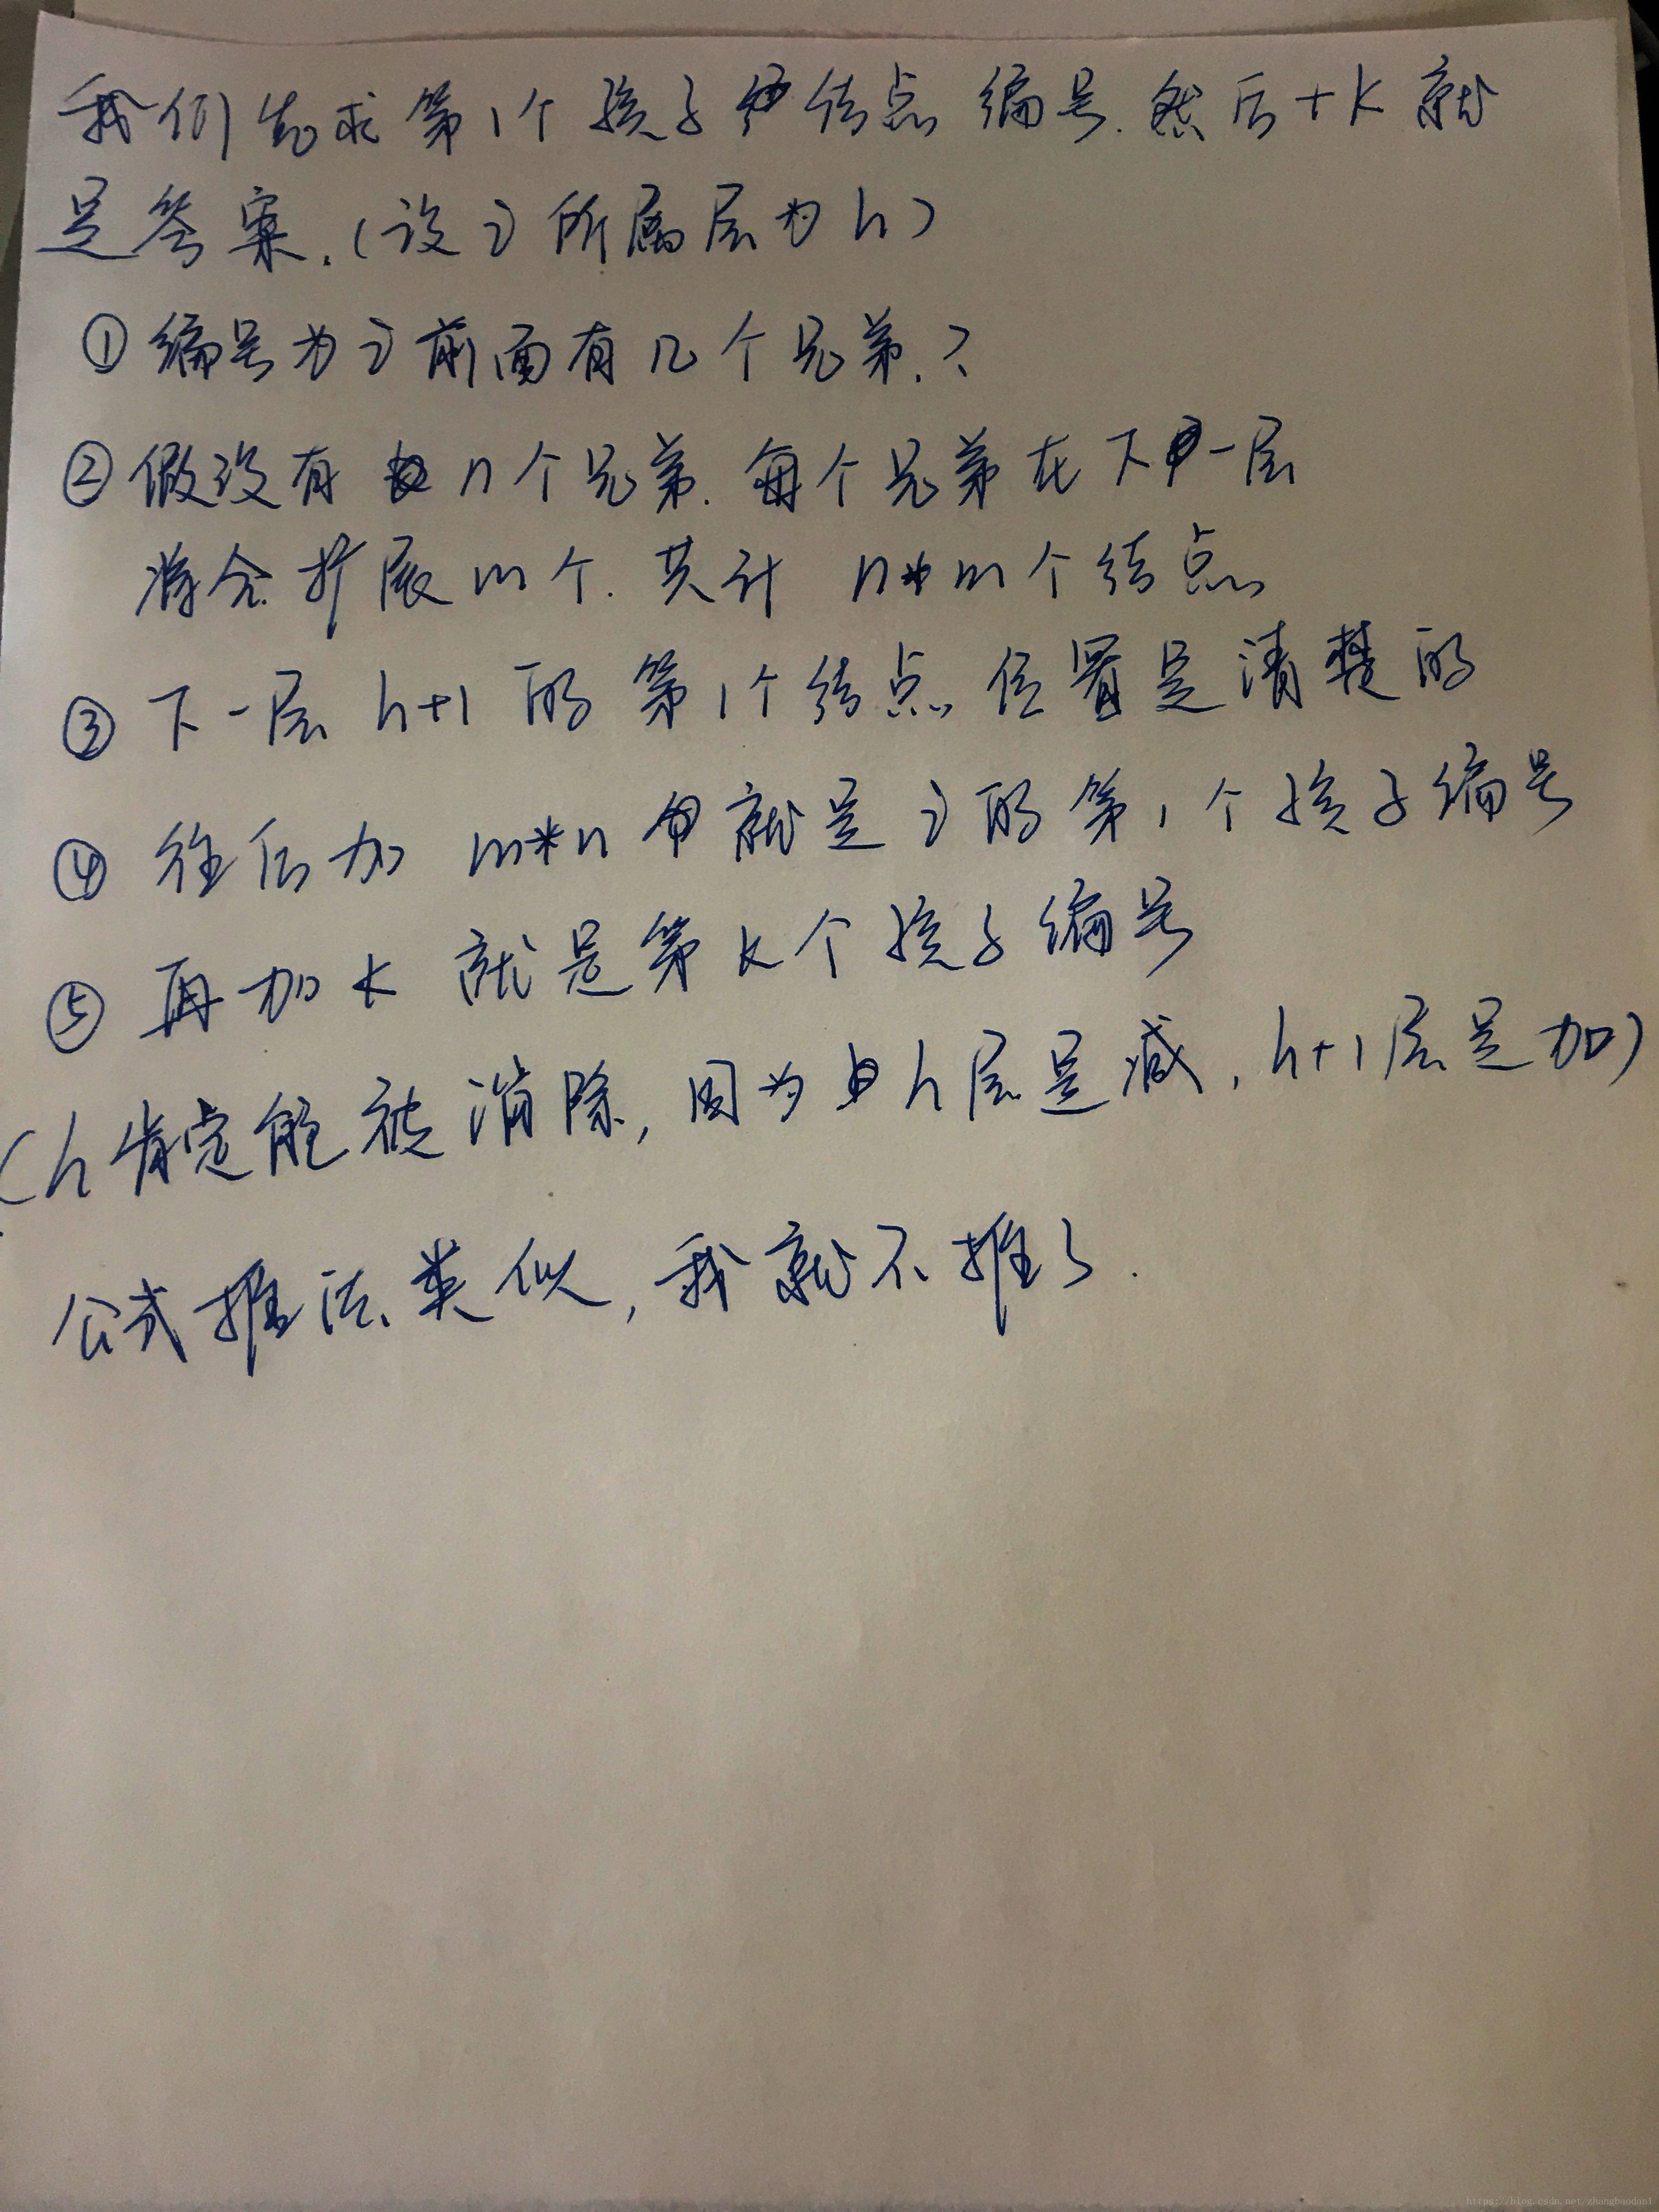 我们先求第1个孩子结点编号.然后+k就
是答案.(设i所属层为h)
①编号为i前面有几个兄弟.?
②假设有n个兄弟.每个兄弟在下一层
将会扩展m个.共计 n*m个结点
③下一层h+1的第1个结点位置是清楚的
④往后加 m*n 就是i的第1个孩子编号
⑤再加k就是第k个孩子编号
(h肯定能被消除,因为h层是减,h+1层是加)
公式推法类似,我就不推了.
https://blog.csdn.net/zhanghuodan1